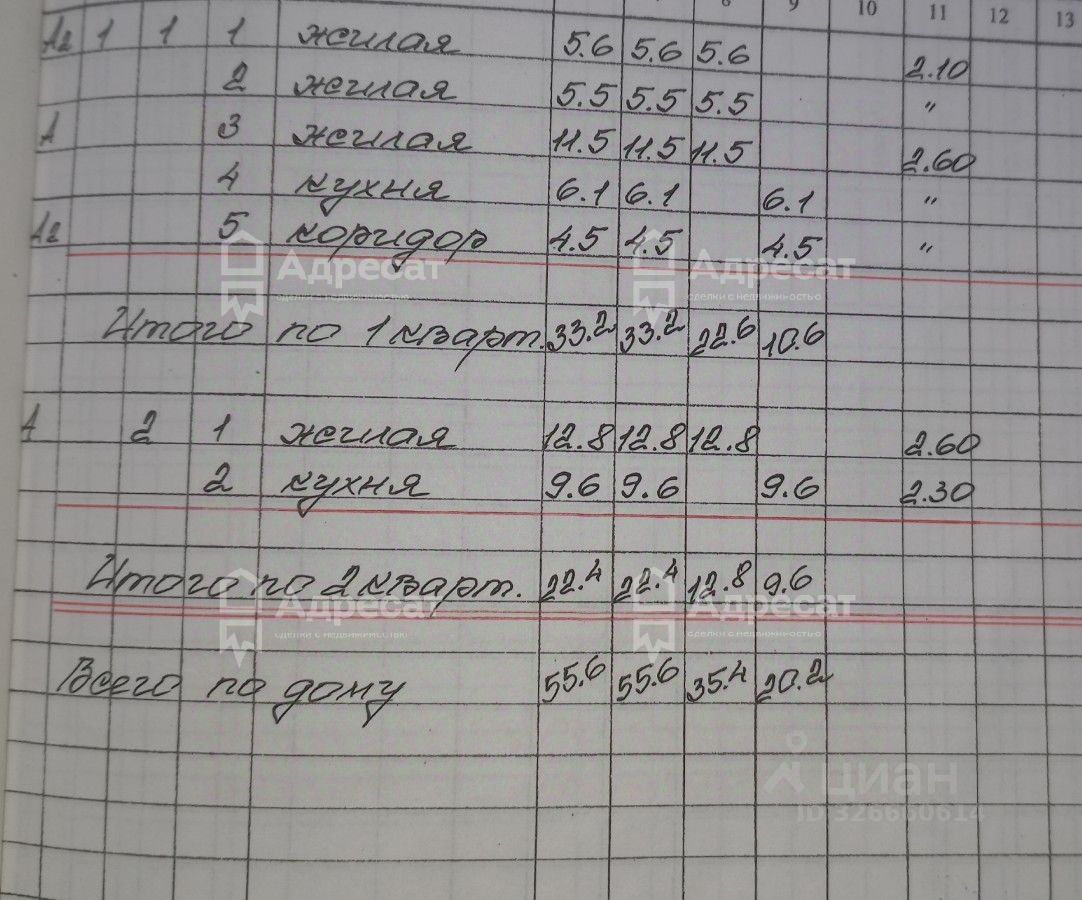 8 9 10 11 12 13
А2 1 1 1 жилая 5.6 5.6 5.6 2.10
2 жилая 5.5 5.5 5.5 "
А 3 жилая 11.5 11.5 11.5 2.60
4 кухня 6.1 6.1 6.1 "
А2 5 коридор 4.5 4.5 4.5 "
Адресат Адресат
сделки с недвижимостью сделки с недвижимостью
Итого по 1 кварт. 33.2 33.2 22.6 10.6
А 2 1 жилая 12.8 12.8 12.8 2.60
2 кухня 9.6 9.6 9.6 2.30
Итого по 2 кварт. 22.4 22.4 12.8 9.6
Адресат Адресат
сделки с недвижимостью сделки с недвижимостью
Всего по дому 55.6 55.6 35.4 20.2
циан
ID 326660614